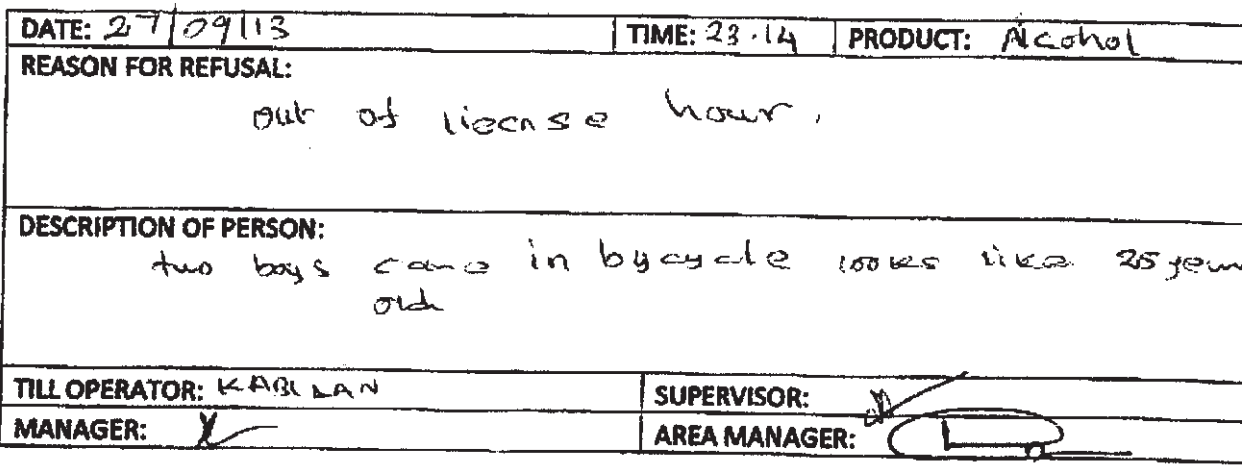 DATE: 27/09/13 TIME: 23.14 PRODUCT: Alcohol
REASON FOR REFUSAL:
out of license hour.
DESCRIPTION OF PERSON:
two boys came in bycycle looks like 25 year
old
TILL OPERATOR: KABILAN SUPERVISOR:
MANAGER: AREA MANAGER: